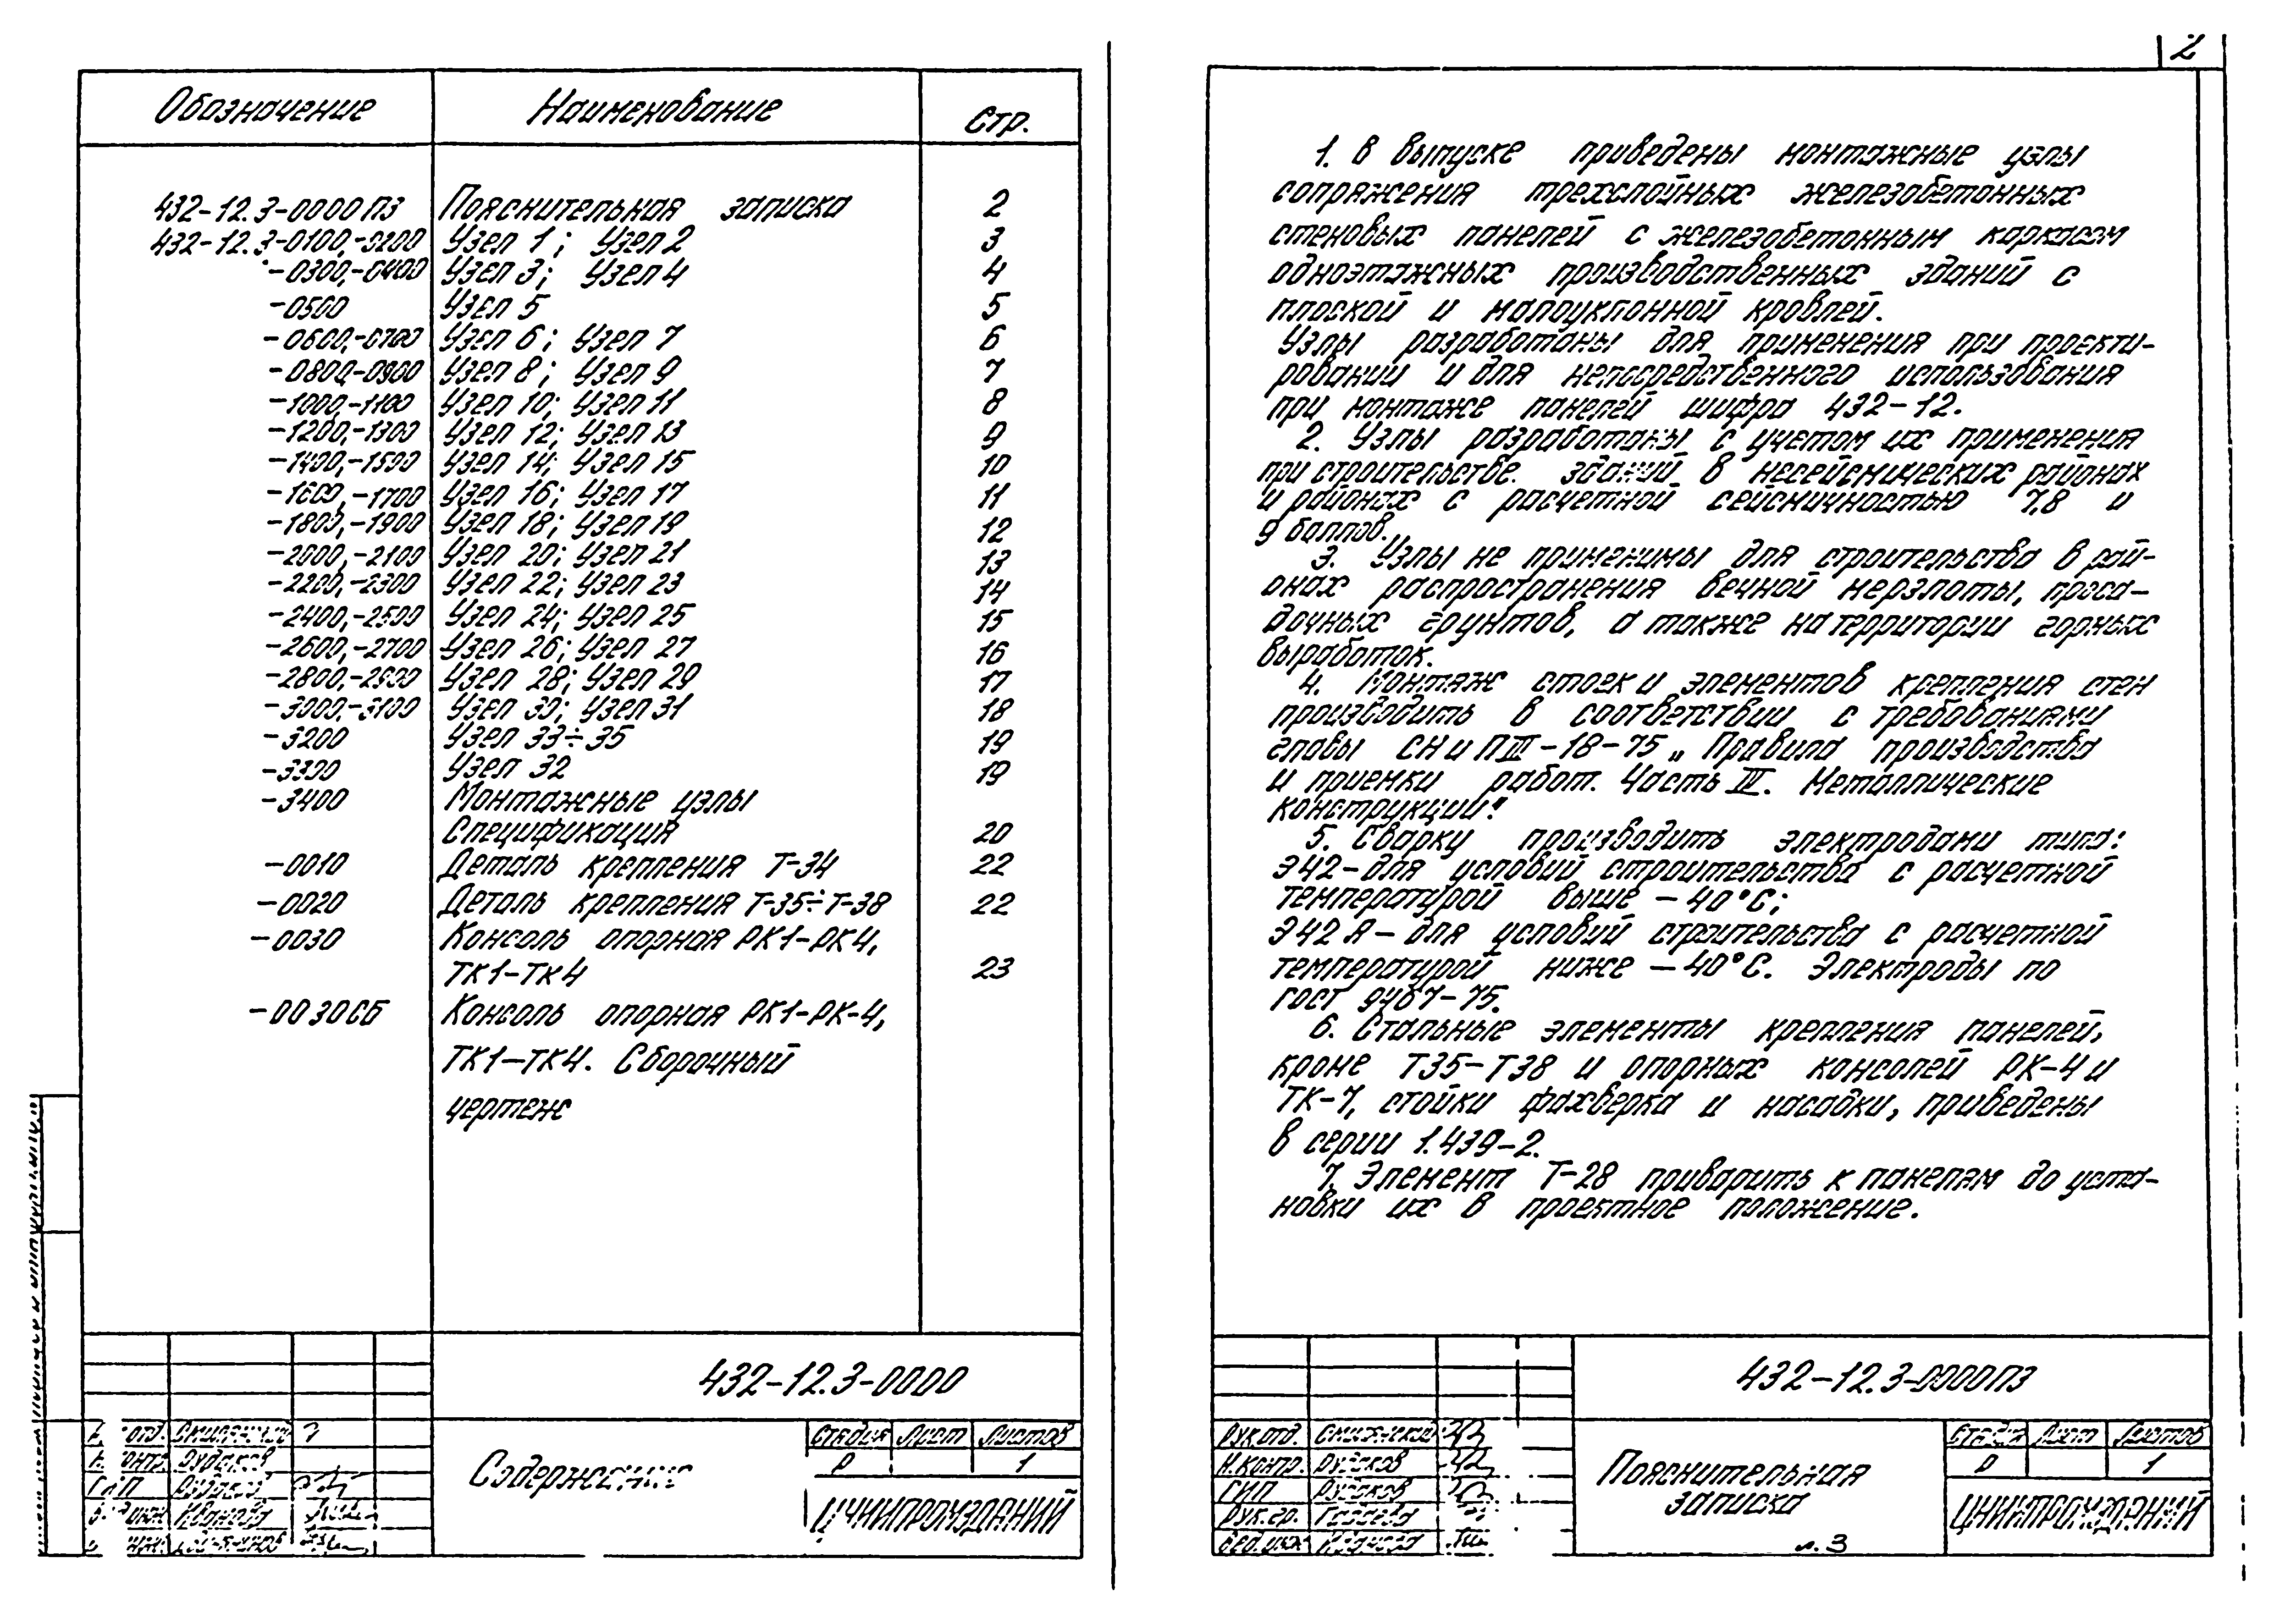 Обозначение Наименование Стр.
432-12.3-0000ПЗ Пояснительная записка 2
432-12.3-0100,-0200 Узел 1; Узел 2 3
-0300,-0400 Узел 3; Узел 4 4
-0500 Узел 5 5
-0600,-0700 Узел 6; Узел 7 6
-0800,-0900 Узел 8; Узел 9 7
-1000,-1100 Узел 10; Узел 11 8
-1200,-1300 Узел 12; Узел 13 9
-1400,-1500 Узел 14; Узел 15 10
-1600,-1700 Узел 16; Узел 17 11
-1800,-1900 Узел 18; Узел 19 12
-2000,-2100 Узел 20; Узел 21 13
-2200,-2300 Узел 22; Узел 23 14
-2400,-2500 Узел 24; Узел 25 15
-2600,-2700 Узел 26; Узел 27 16
-2800,-2900 Узел 28; Узел 29 17
-3000,-3100 Узел 30; Узел 31 18
-3200 Узел 33÷35 19
-3300 Узел 32 19
-3400 Монтажные узлы
Спецификация 20
-0010 Деталь крепления Т-34 22
-0020 Деталь крепления Т-35÷Т-38 22
-0030 Консоль опорная РК1-РК4,
ТК1-ТК4 23
-0030СБ Консоль опорная РК1-РК-4,
ТК1-ТК4. Сборочный
чертеж
432-12.3-0000
Содержание
Стадия Лист Листов
Р 1
ЦНИИПРОМЗДАНИЙ
Н.контр. Рудаков
ГИП Рудаков
Иванова
2
1. В выпуске приведены монтажные узлы
сопряжения трехслойных железобетонных
стеновых панелей с железобетонным каркасом
одноэтажных производственных зданий с
плоской и малоуклонной кровлей.
Узлы разработаны для применения при проекти-
ровании и для непосредственного использования
при монтаже панелей шифра 432-12.
2. Узлы разработаны с учетом их применения
при строительстве зданий в несейсмических районах
и районах с расчетной сейсмичностью 7,8 и
9 баллов.
3. Узлы не применимы для строительства в рай-
онах распространения вечной мерзлоты, проса-
дочных грунтов, а также на территории горных
выработок.
4. Монтаж стоек и элементов крепления стен
производить в соответствии с требованиями
главы СНиП III-18-75 „Правила производства
и приемки работ. Часть III. Металлические
конструкции".
5. Сварку производить электродами типа:
Э42-для условий строительства с расчетной
температурой выше -40°С;
Э42А-для условий строительства с расчетной
температурой ниже -40°С. Электроды по
ГОСТ 9467-75.
6. Стальные элементы крепления панелей,
кроме Т35-Т38 и опорных консолей РК-4 и
ТК-7, стойки фахверка и насадки, приведены
в серии 1.439-2.
7. Элемент Т-28 приварить к панелям до уста-
новки их в проектное положение.
432-12.3-0000ПЗ
Пояснительная
записка
Стадия Лист Листов
Р 1
ЦНИИПРОМЗДАНИЙ
Рук.отд.
Н.контр. Рудаков
ГИП Рудаков
Рук.гр.
Вед.инж. Иванова
л.3